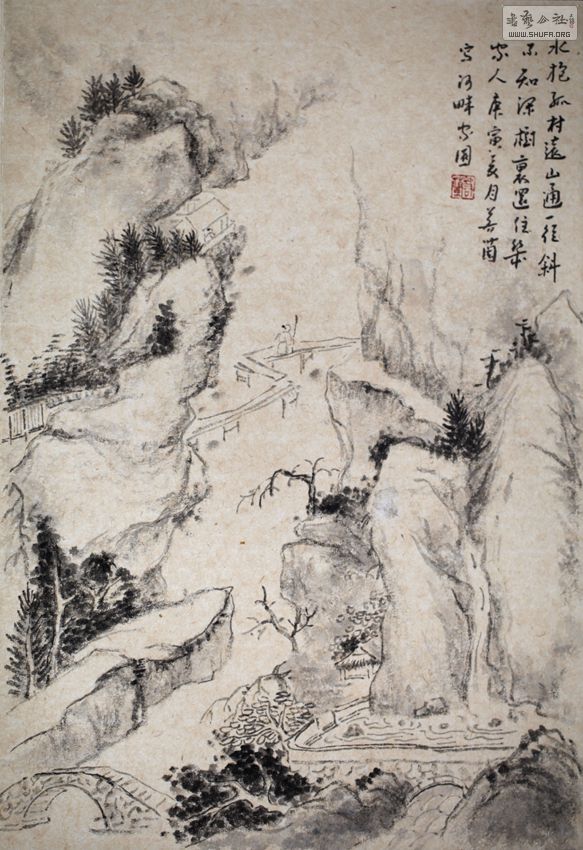 書藝公社
WWW.SHUFA.ORG
水抱孤村遠山通一徑斜
不知深樹裏還住幾
家人庚寅月善
寫河畔家園